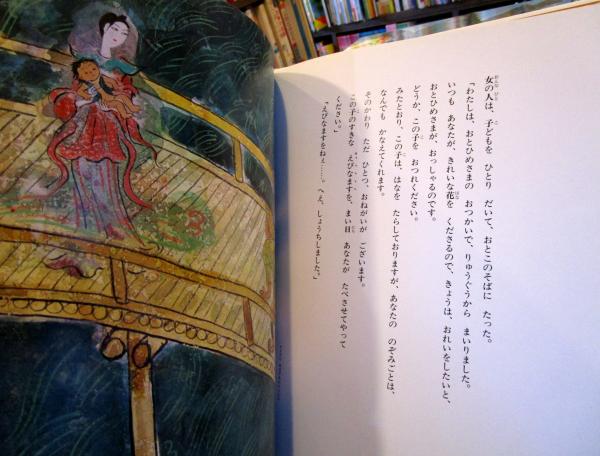 女の人は、子どもを ひとり だいて、おとこのそばに たった。
「わたしは、おとひめさまの おつかいで、りゅうぐうから まいりました。
いつも あなたが、きれいな花を くださるので、きょうは、おれいをしたいと、
おとひめさまが、おっしゃるのです。
どうか、この子を おつれください。
みたとおり、この子は、はなを たらしておりますが、あなたの のぞみごとは、
なんでも かなえてくれます。
そのかわり ただ ひとつ、おねがいが ございます。
この子のすきな えびなますを、まい日 あなたが たべさせてやって
ください。」
「えびなますをねぇ……。へえ、しょうちしました。」